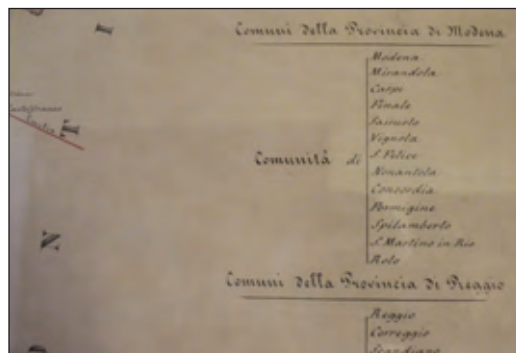 Comuni della Provincia di Modena
Comunità di
Modena
Mirandola
Carpi
Finale
Sassuolo
Vignola
S. Felice
Nonantola
Concordia
Formigine
Spilamberto
S. Martino in Rio
Rolo
Comuni della Provincia di Reggio
Reggio
Correggio
Scandiano
Castelfranco
Emilia
I
N